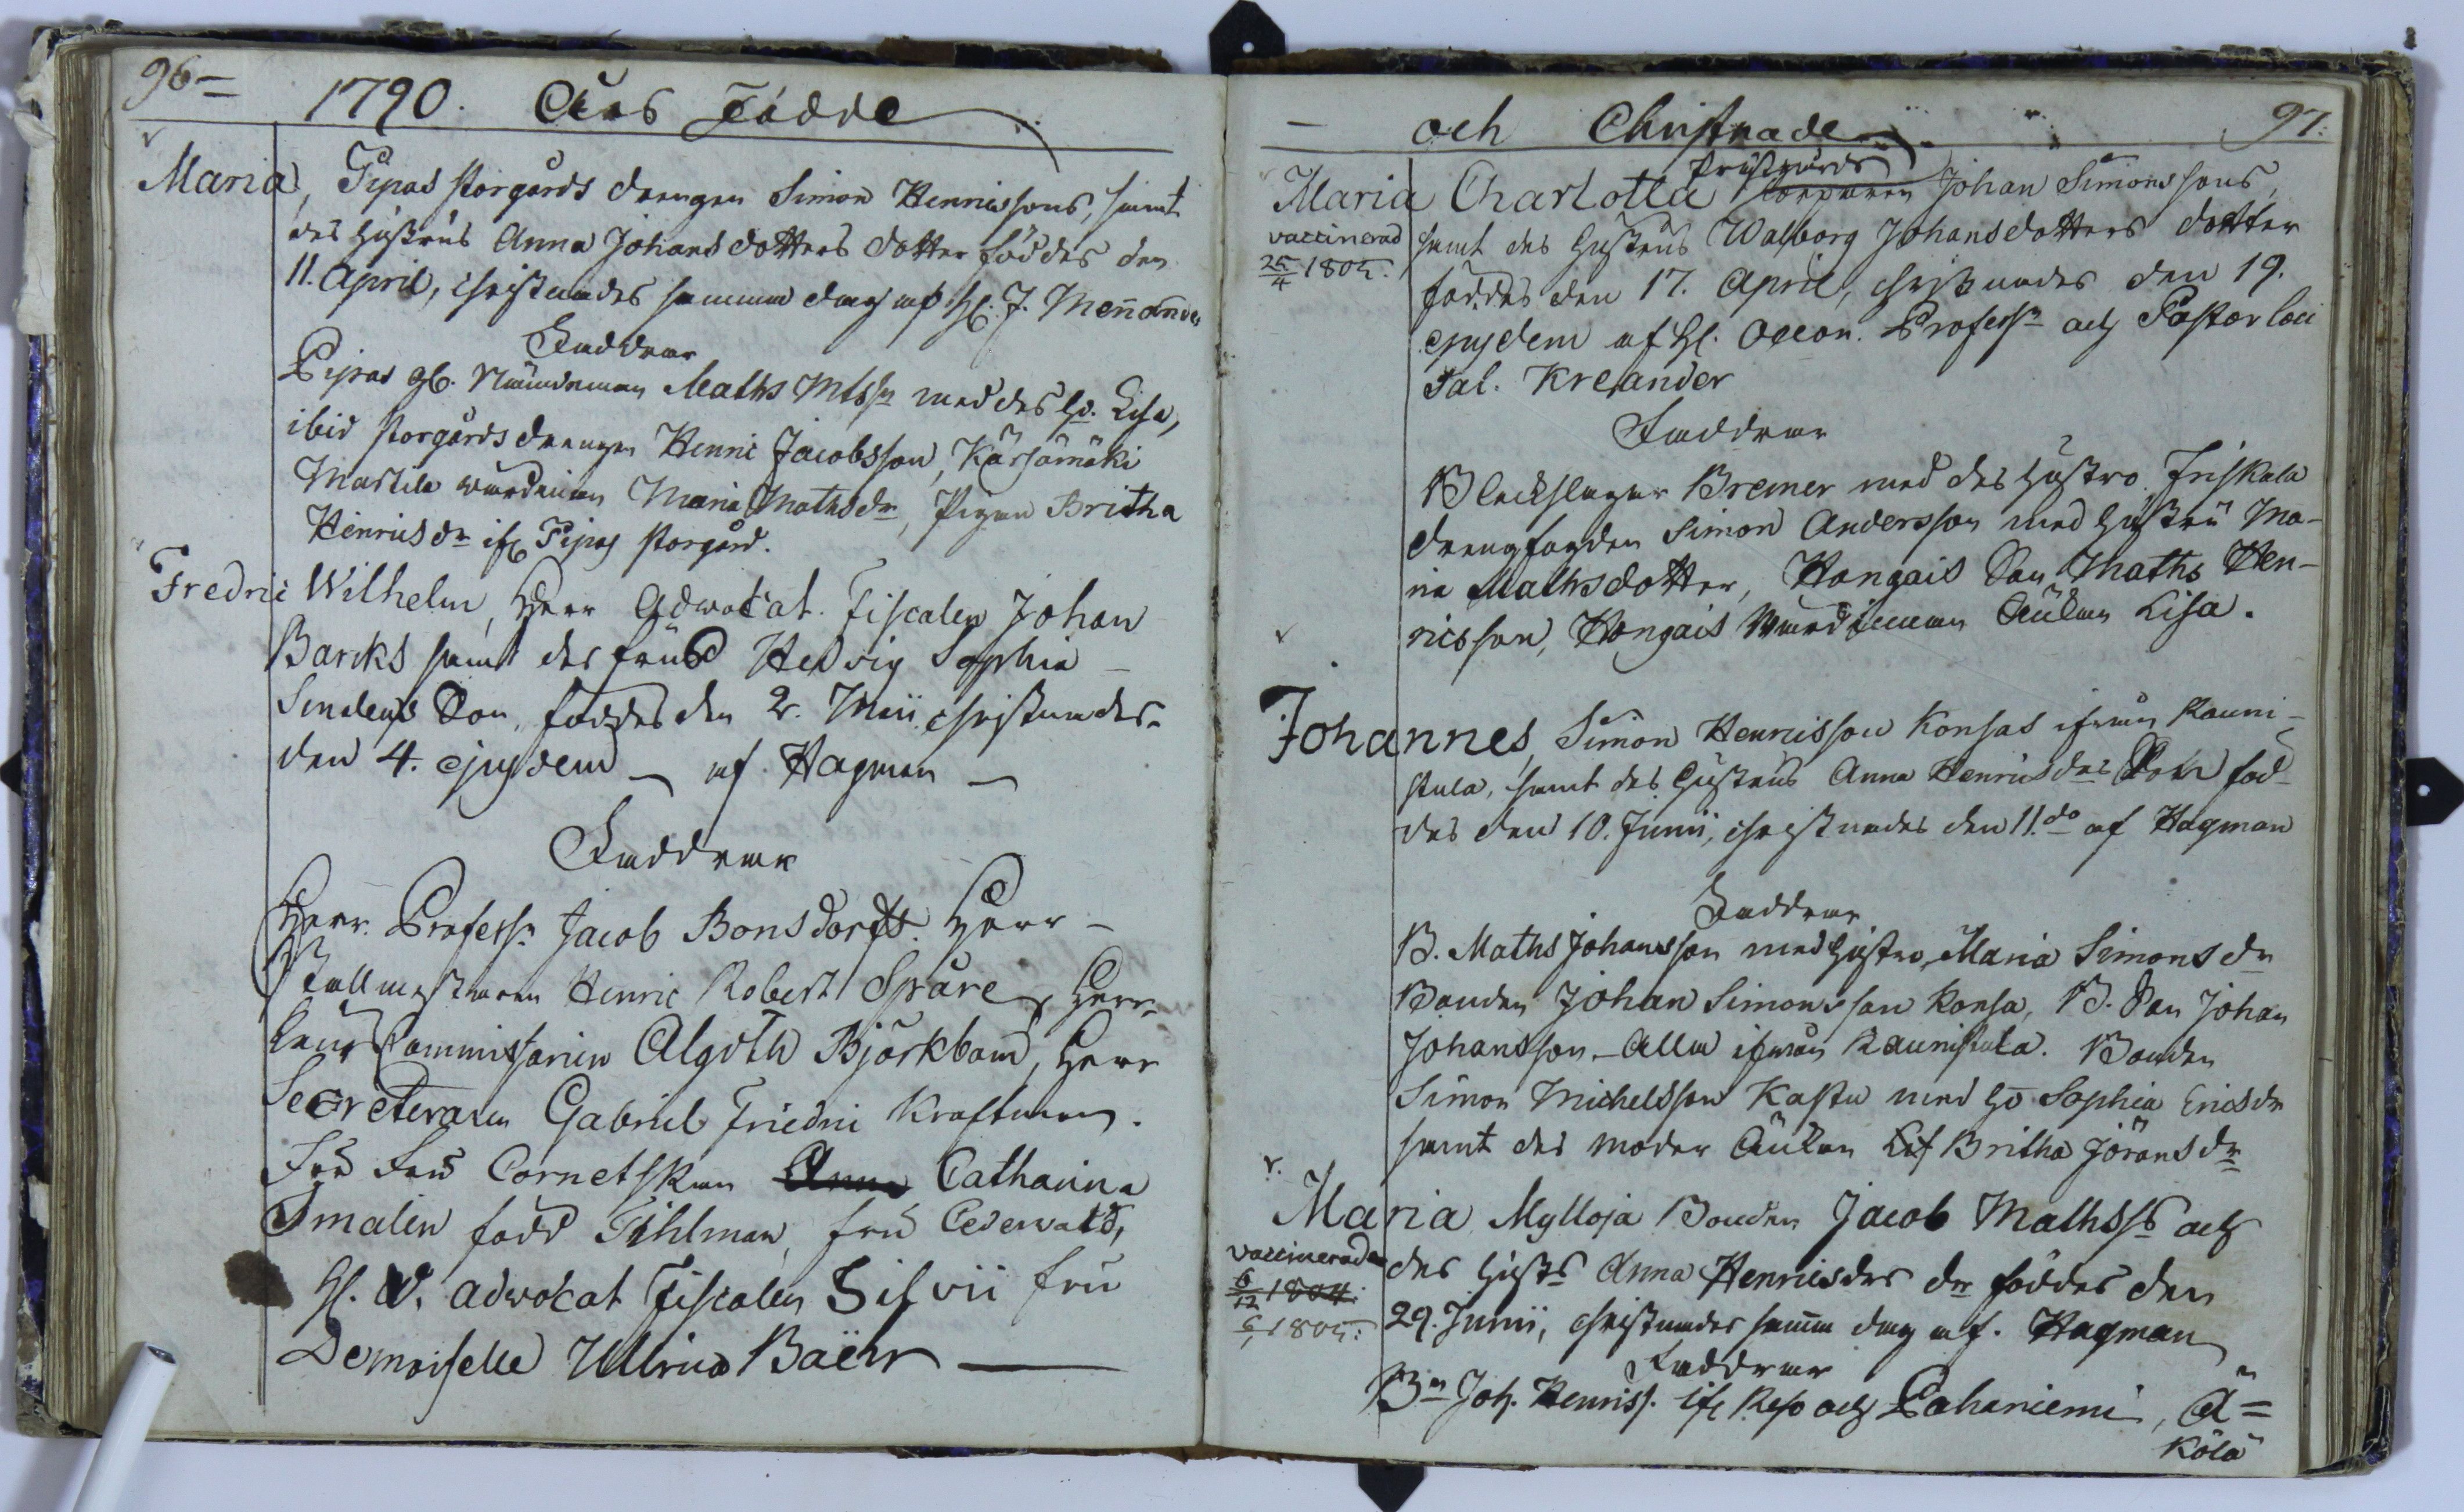 96
1790. Åhrs Födde
Maria, Pipas storgårds drengen Simon Henricssons, samt
des hustrus Anna Johansdotters dotter föddes den
11. April, christnades samma dag af H. J. Menander
Faddrar
Pipas gl. Nämdeman Maths Mtsson med des ho. Lisa,
ibid storgårds drengen Henric Jacobsson, Kärsämäki
Martila wärdinnan Maria Mathsdr, Pigan Britha
Henricsdr ifr Pipas storgård.
Fredric Wilhelm, Herr Advocat Fiscalen Johan
Barcks samt des frus Hedvig Sophia
Son, föddes den 2. Maii christnades
den 4. ejusdem af Hagman
Faddrar
Herr Professr Jacob Bonsdorff. Herr
Stallmestaren Henric Robert Spåre, Herr
Commissarien Algoth Björkbom, Herr
Secreteraren Gabriel Friedric Kraftman.
Fru Cornetskan Anna Catharina
Smalén född Tihlman, fru Cederwald,
H. V. Advocat Fiscalen Silvii fru
Demoiselle Ullrica Baehr
och Christnade
97.
prästgårds
Maria Charlotta torparen Johan Simonssons,
vaccinerad samt des hustrus Walborg Johansdotters dotter
25/4 1805. föddes den 17. April, christnades den 19.
ejusdem af H. Oecon. Professr och Pastor loci
Sal. Kreander
Faddrar
Bleckslagar Bremer med des hustro. Friskala
drengfogden Simon Andersson med hustru Ma-
ria Mathsdotter, Hongais Son Maths Hen-
ricsson, Hongais Wärdinnan Enkan Lisa.
Johannes, Simon Henricsson Konsas ifrån Rauni-
stula, samt des hustrus Anna Henricsdrs Son föd-
des den 10. Junii, christnades den 11. do af Hagman
Faddrar
B. Maths Johansson med hustro Maria Simonsdr
Bonden Johan Simonsson Konsa, B. Son Johan
Johansson Alla ifrån Raunistula. Bonden
Simon Michelsson Kastu med ho Sophia Ericsdr
samt des moder Enkan Britha Jöransdr
Maria Mylloja Bonden Jacob Mathss och
vaccinerad des hustrs Anna Henricsdrs dr föddes den
6/12 1804.
1805. 29. Junii, christnades samma dag af. Hagman
Faddrar
Bn Joh. Henrics. ifr Reso och Pahaniemi, Ä=
kölä